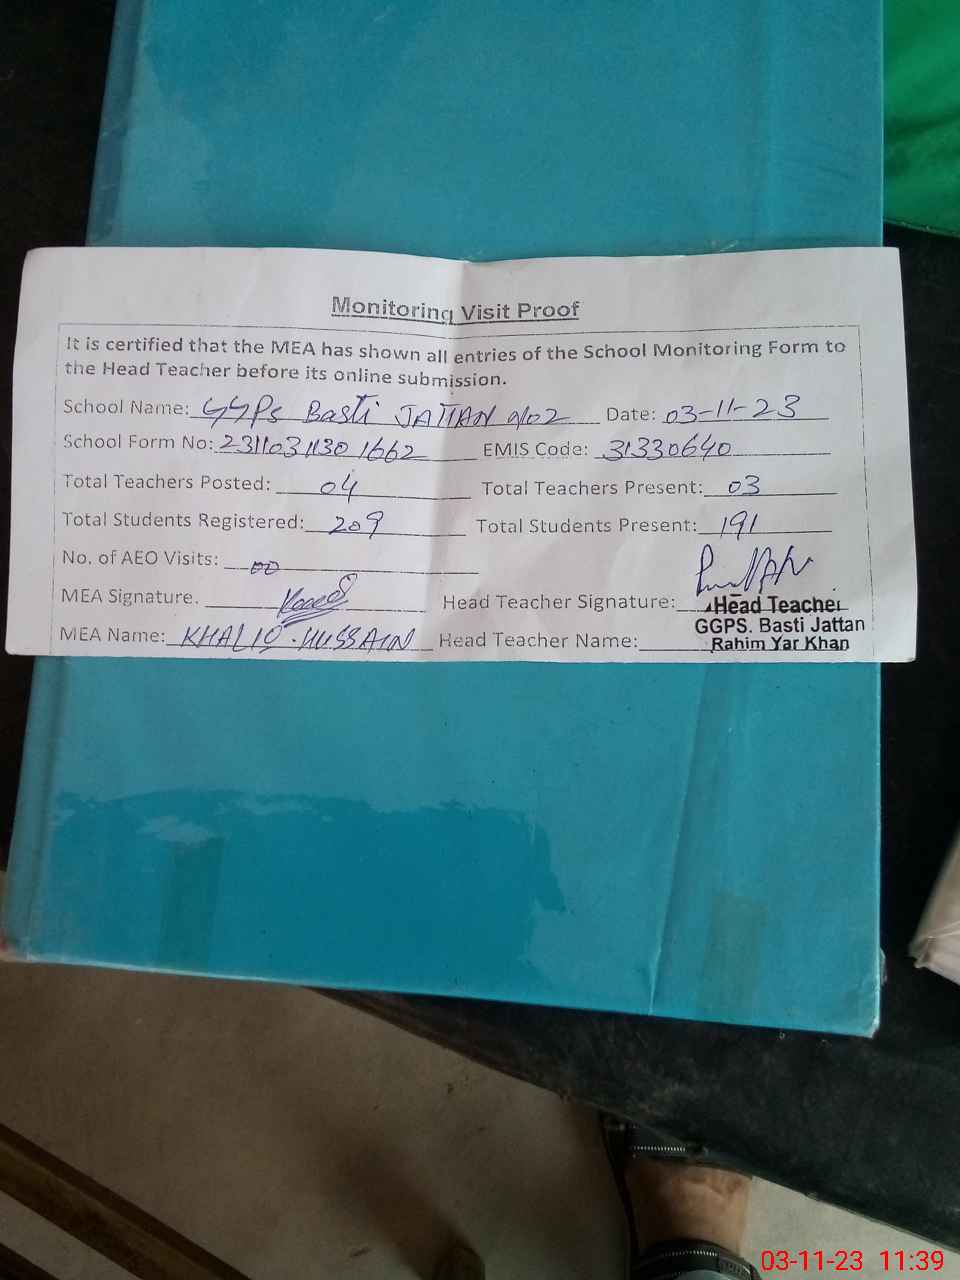 Monitoring Visit Proof
It is certified that the MEA has shown all entries of the School Monitoring Form to
the Head Teacher before its online submission.
School Name: GGPS Basti JATTAN No2 Date: 03-11-23
School Form No: 231103 1130 1662 EMIS Code: 31330640
Total Teachers Posted: 04 Total Teachers Present: 03
Total Students Registered: 209 Total Students Present: 191
No. of AEO Visits: 00
MEA Signature. Head Teacher Signature: Head Teacher
GGPS. Basti Jattan
MEA Name: KHALIQ.HUSSAIN Head Teacher Name: Rahim Yar Khan
03-11-23 11:39